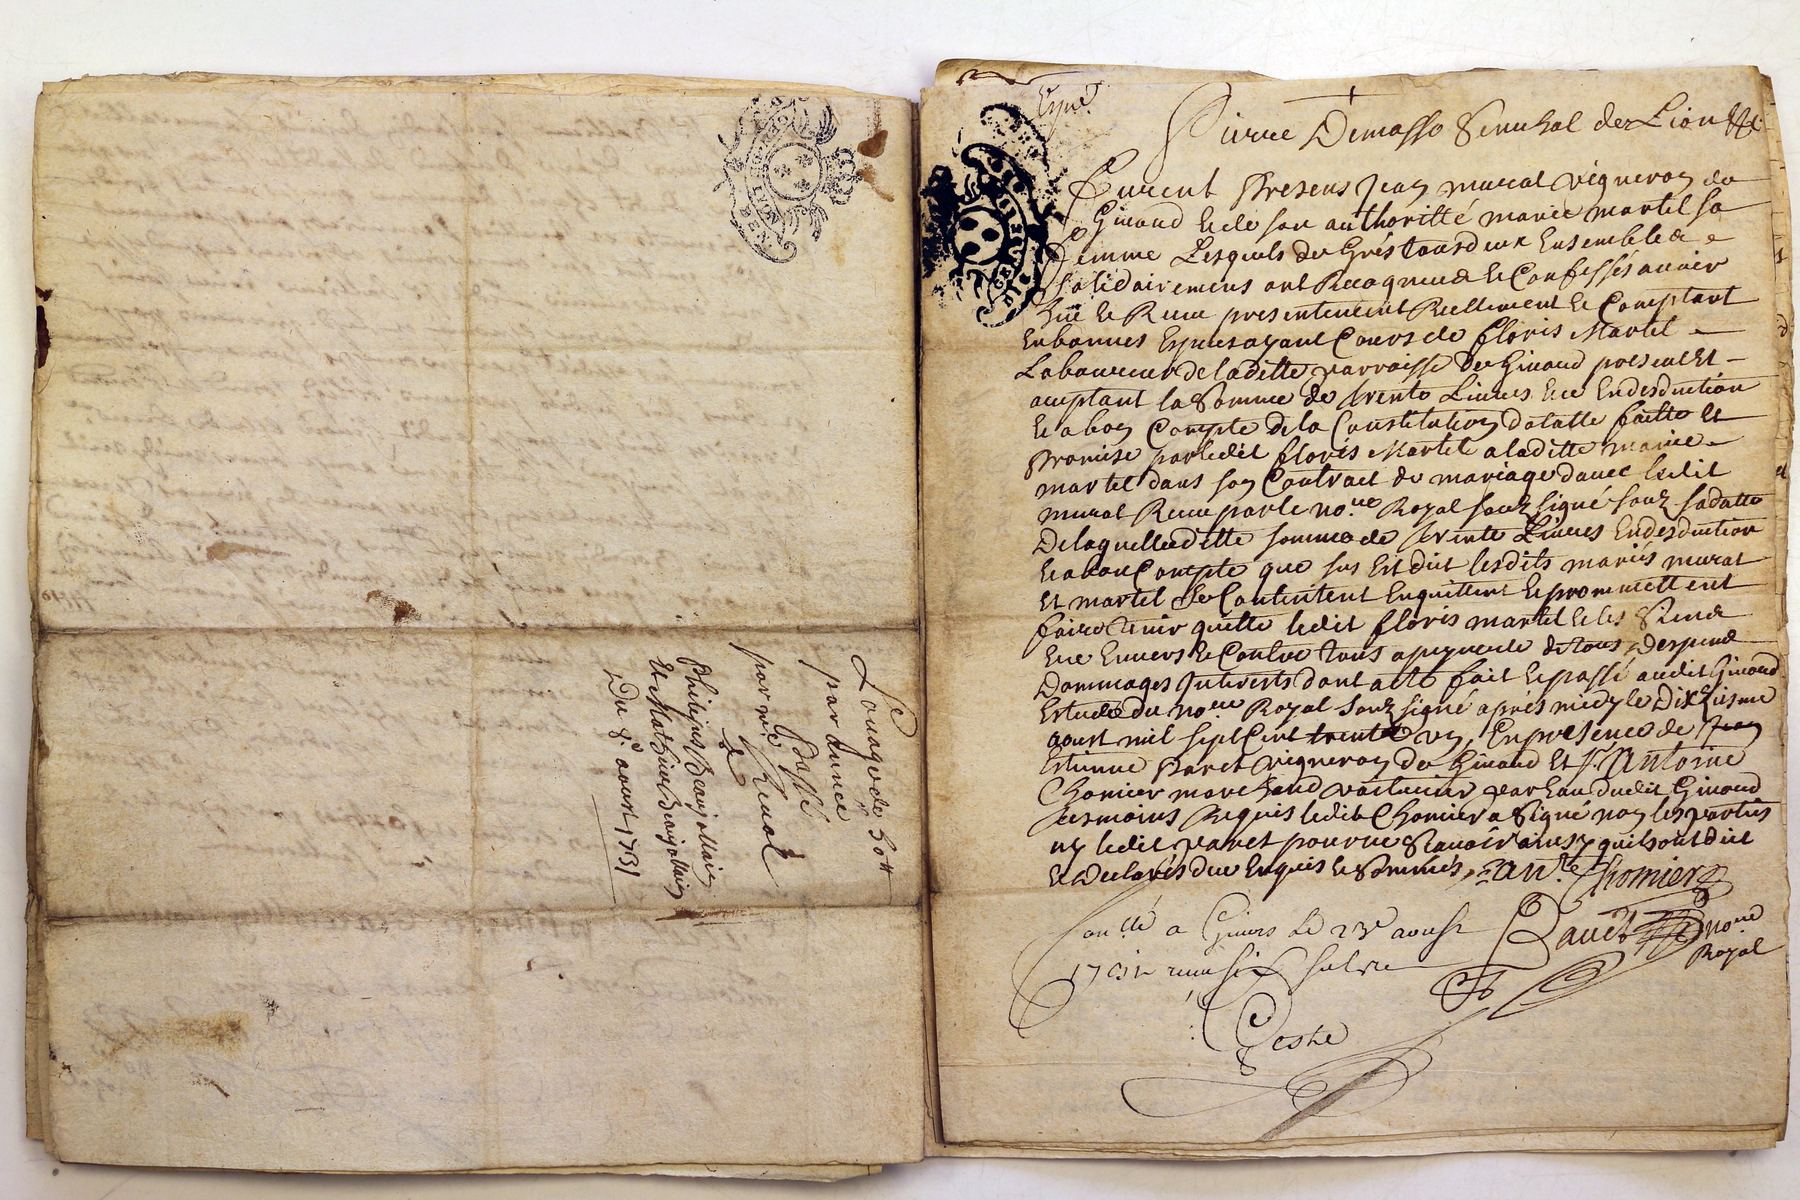 Louage de 50 ₶
par année
Passé
par m.e Renal
a
Philipes Beaujollais
Et Mathieu Beaujollais
Du 8.e aoust 1731
Expié.
Pierre Demasso Seneschal de Lion &c.
Furent Presens Jean murat vigneron de
Givord Et de son authoritté marie martel sa
femme Lesquels de Grés tous deux Ensemble &
solidairement ont Recogneus Et Confessés avoir
heu Et Receu presentement Reellement Et Comptant
En bonnes Especes ayant Cours de floris Martel
Laboureur de laditte parroisse de Givord present Et
aceptant la Somme de trente Livres Et ce En desduction
Et a bon Compte de la Constitution dotalle faitte Et
Promise par ledit floris Martel a laditte marie
martel dans son Contract de mariage d'avec ledit
murat Receu par le no.re Royal soubsigné soubz sa datte
De laquelle ditte somme de trente Livres En desduction
Et a bon Compte que sus Est dit lesdits mariés murat
Et martel Se Contentent En quittent Et promettent
faire tenir quitte ledit floris martel Et les Siens
Envers Et Contre tous a peyne de tous despens
Dommages Interests dont acte fait Et passé audit Givord
Estude du no.re Royal soubsigné aprés midy le Dix huisme
aoust mil sept Cent trente un, En presence de Jean
Estienne Paret vigneron de Givord Et s.r Antoine
Chomier marchand voiturier par Eau dudit Givord
tesmoins Requis ledit Chomier a Signé non les parties
ny ledit paret pour ne Scavoir ainsy quils ont dit
Et Declarés due Enquis Et Sommés, ant.e Chomier
Con.llé a Givors Le 23e aoust
1731 receu six sols
no.re
Royal